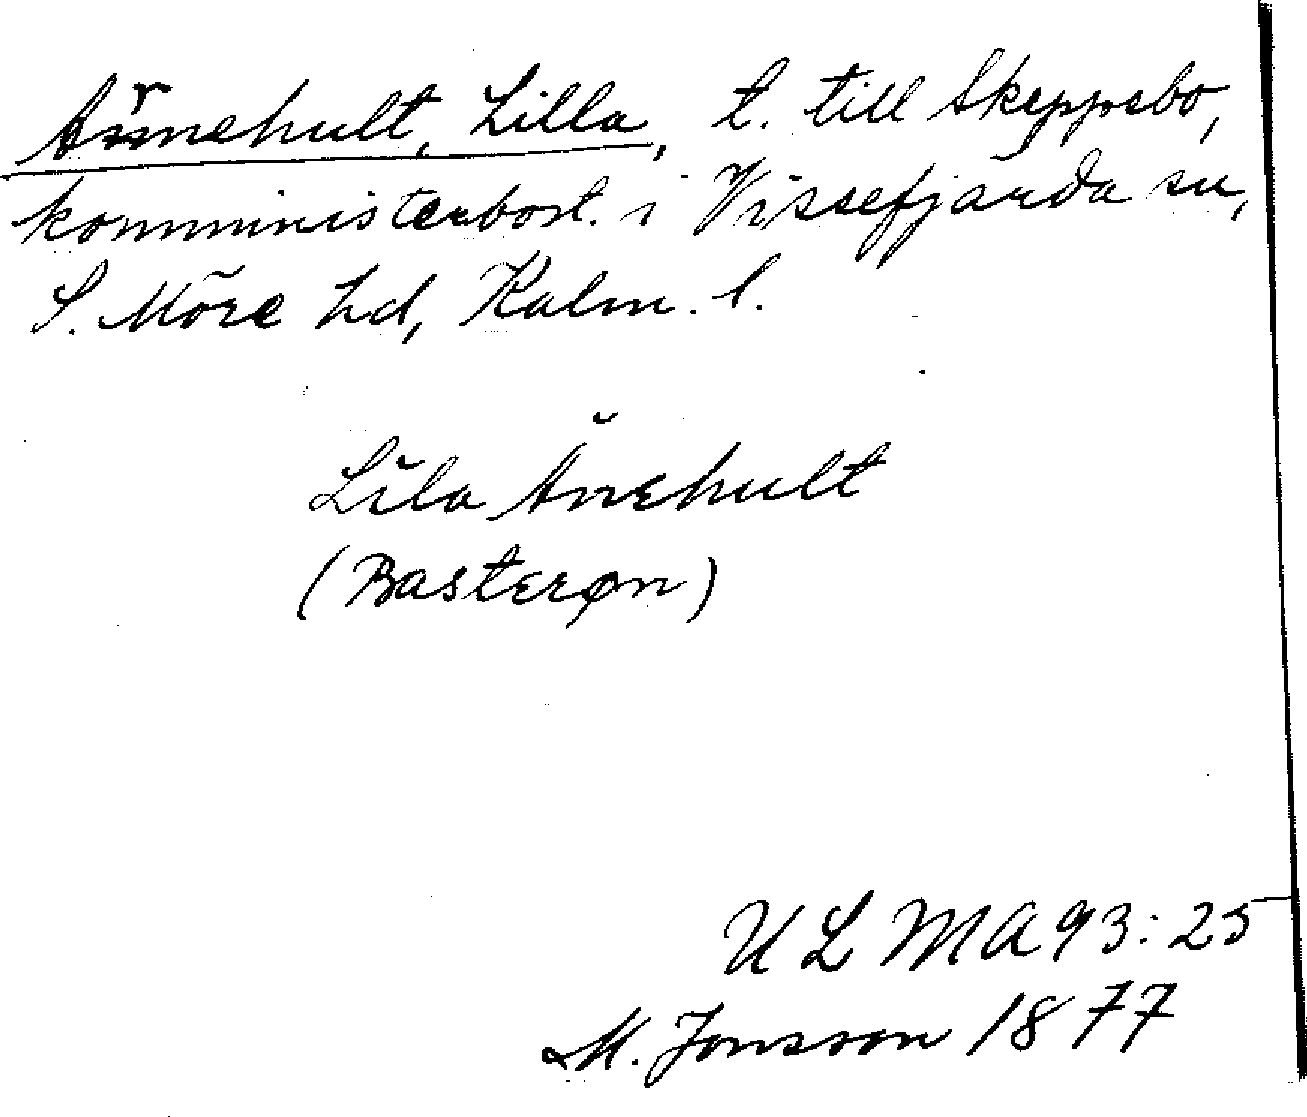 Ännehult, Lilla, t. till Skeppsbo,
komministerbost. i Vissefjärda sn,
S. Möre hd, Kalm. l.
Lila Änehult
(Basterøn)
ULMA 93:25
M. Jonsson 1877